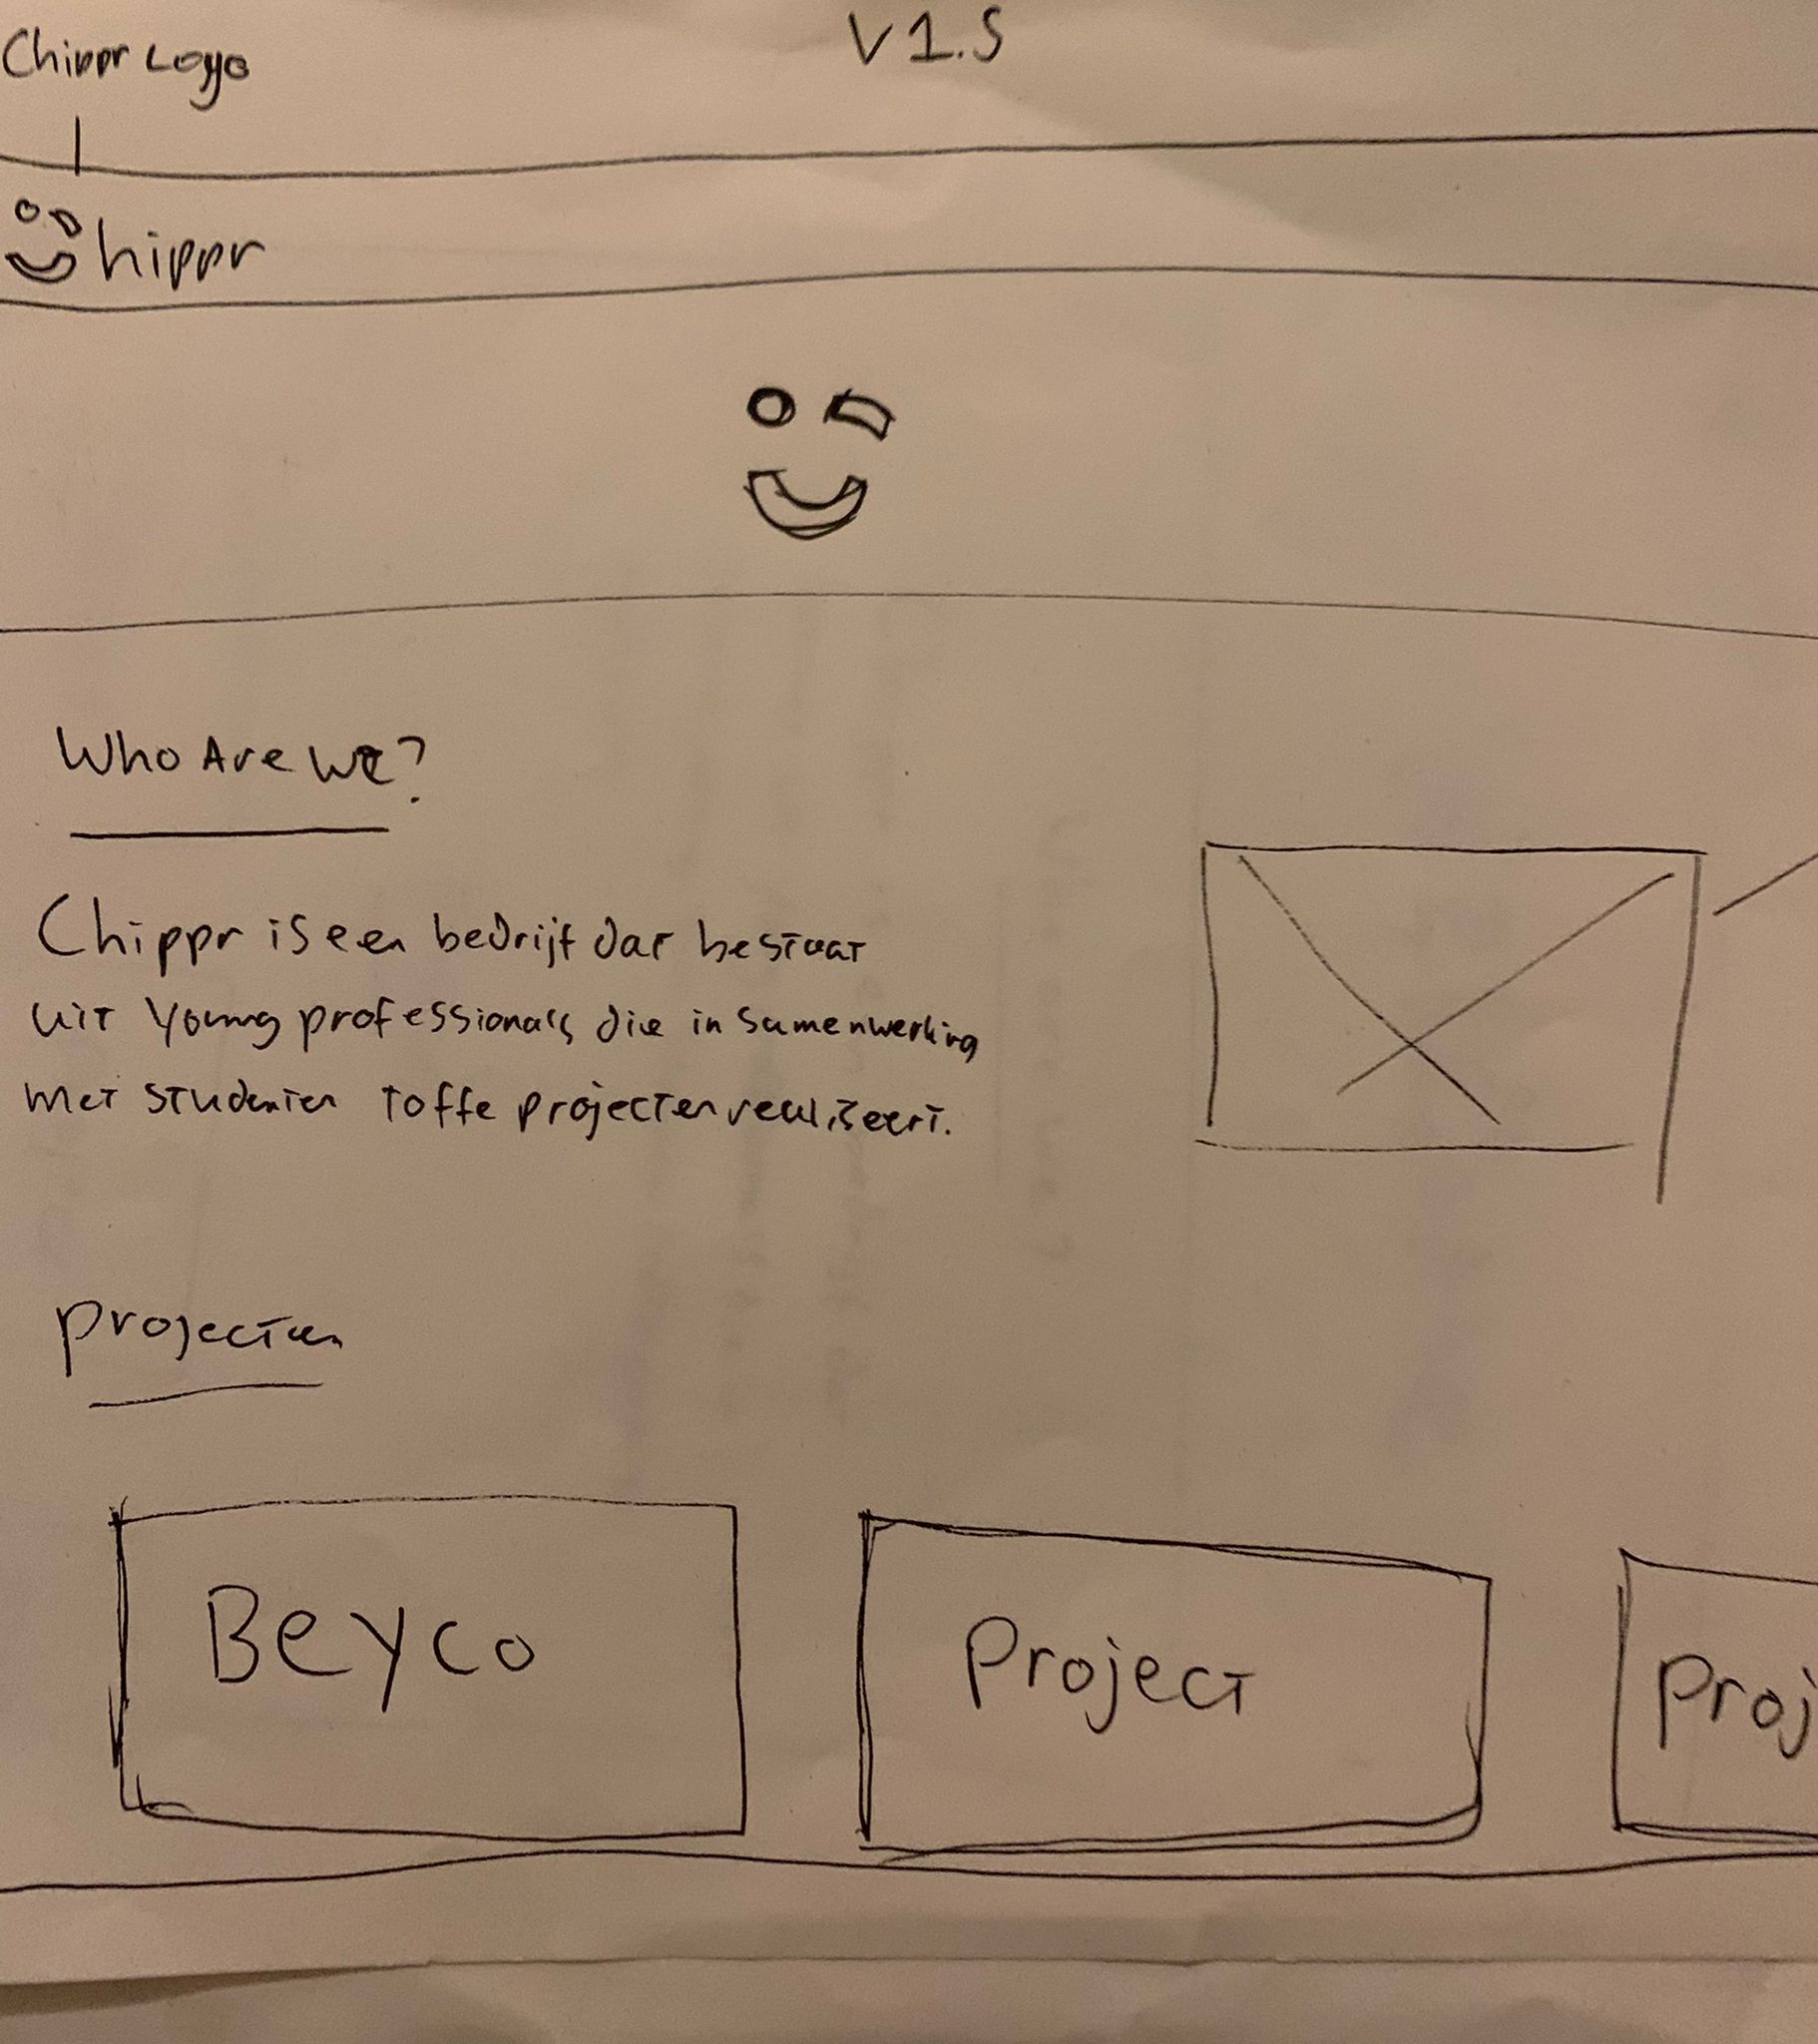 Chippr Logo
V1.5
hippr
Who Are we?
Chippr is een bedrijf dat bestaat
uit Young professionals die in samenwerking
met studenten toffe projecten realiseert.
projecten
Beyco
Project
Proj